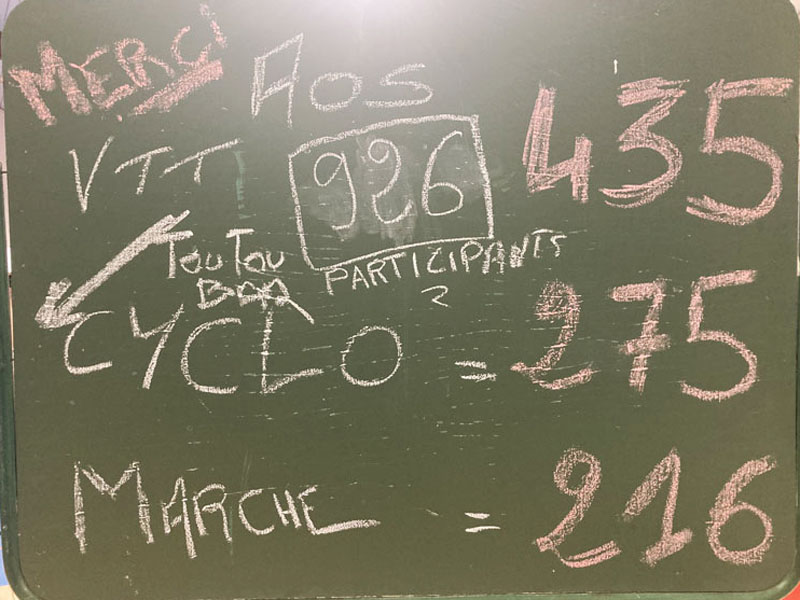 MERCI
AOS
VTT 926 435
TOUTOU
PARTICIPANTS
2
CYCLO = 275
MARCHE = 216